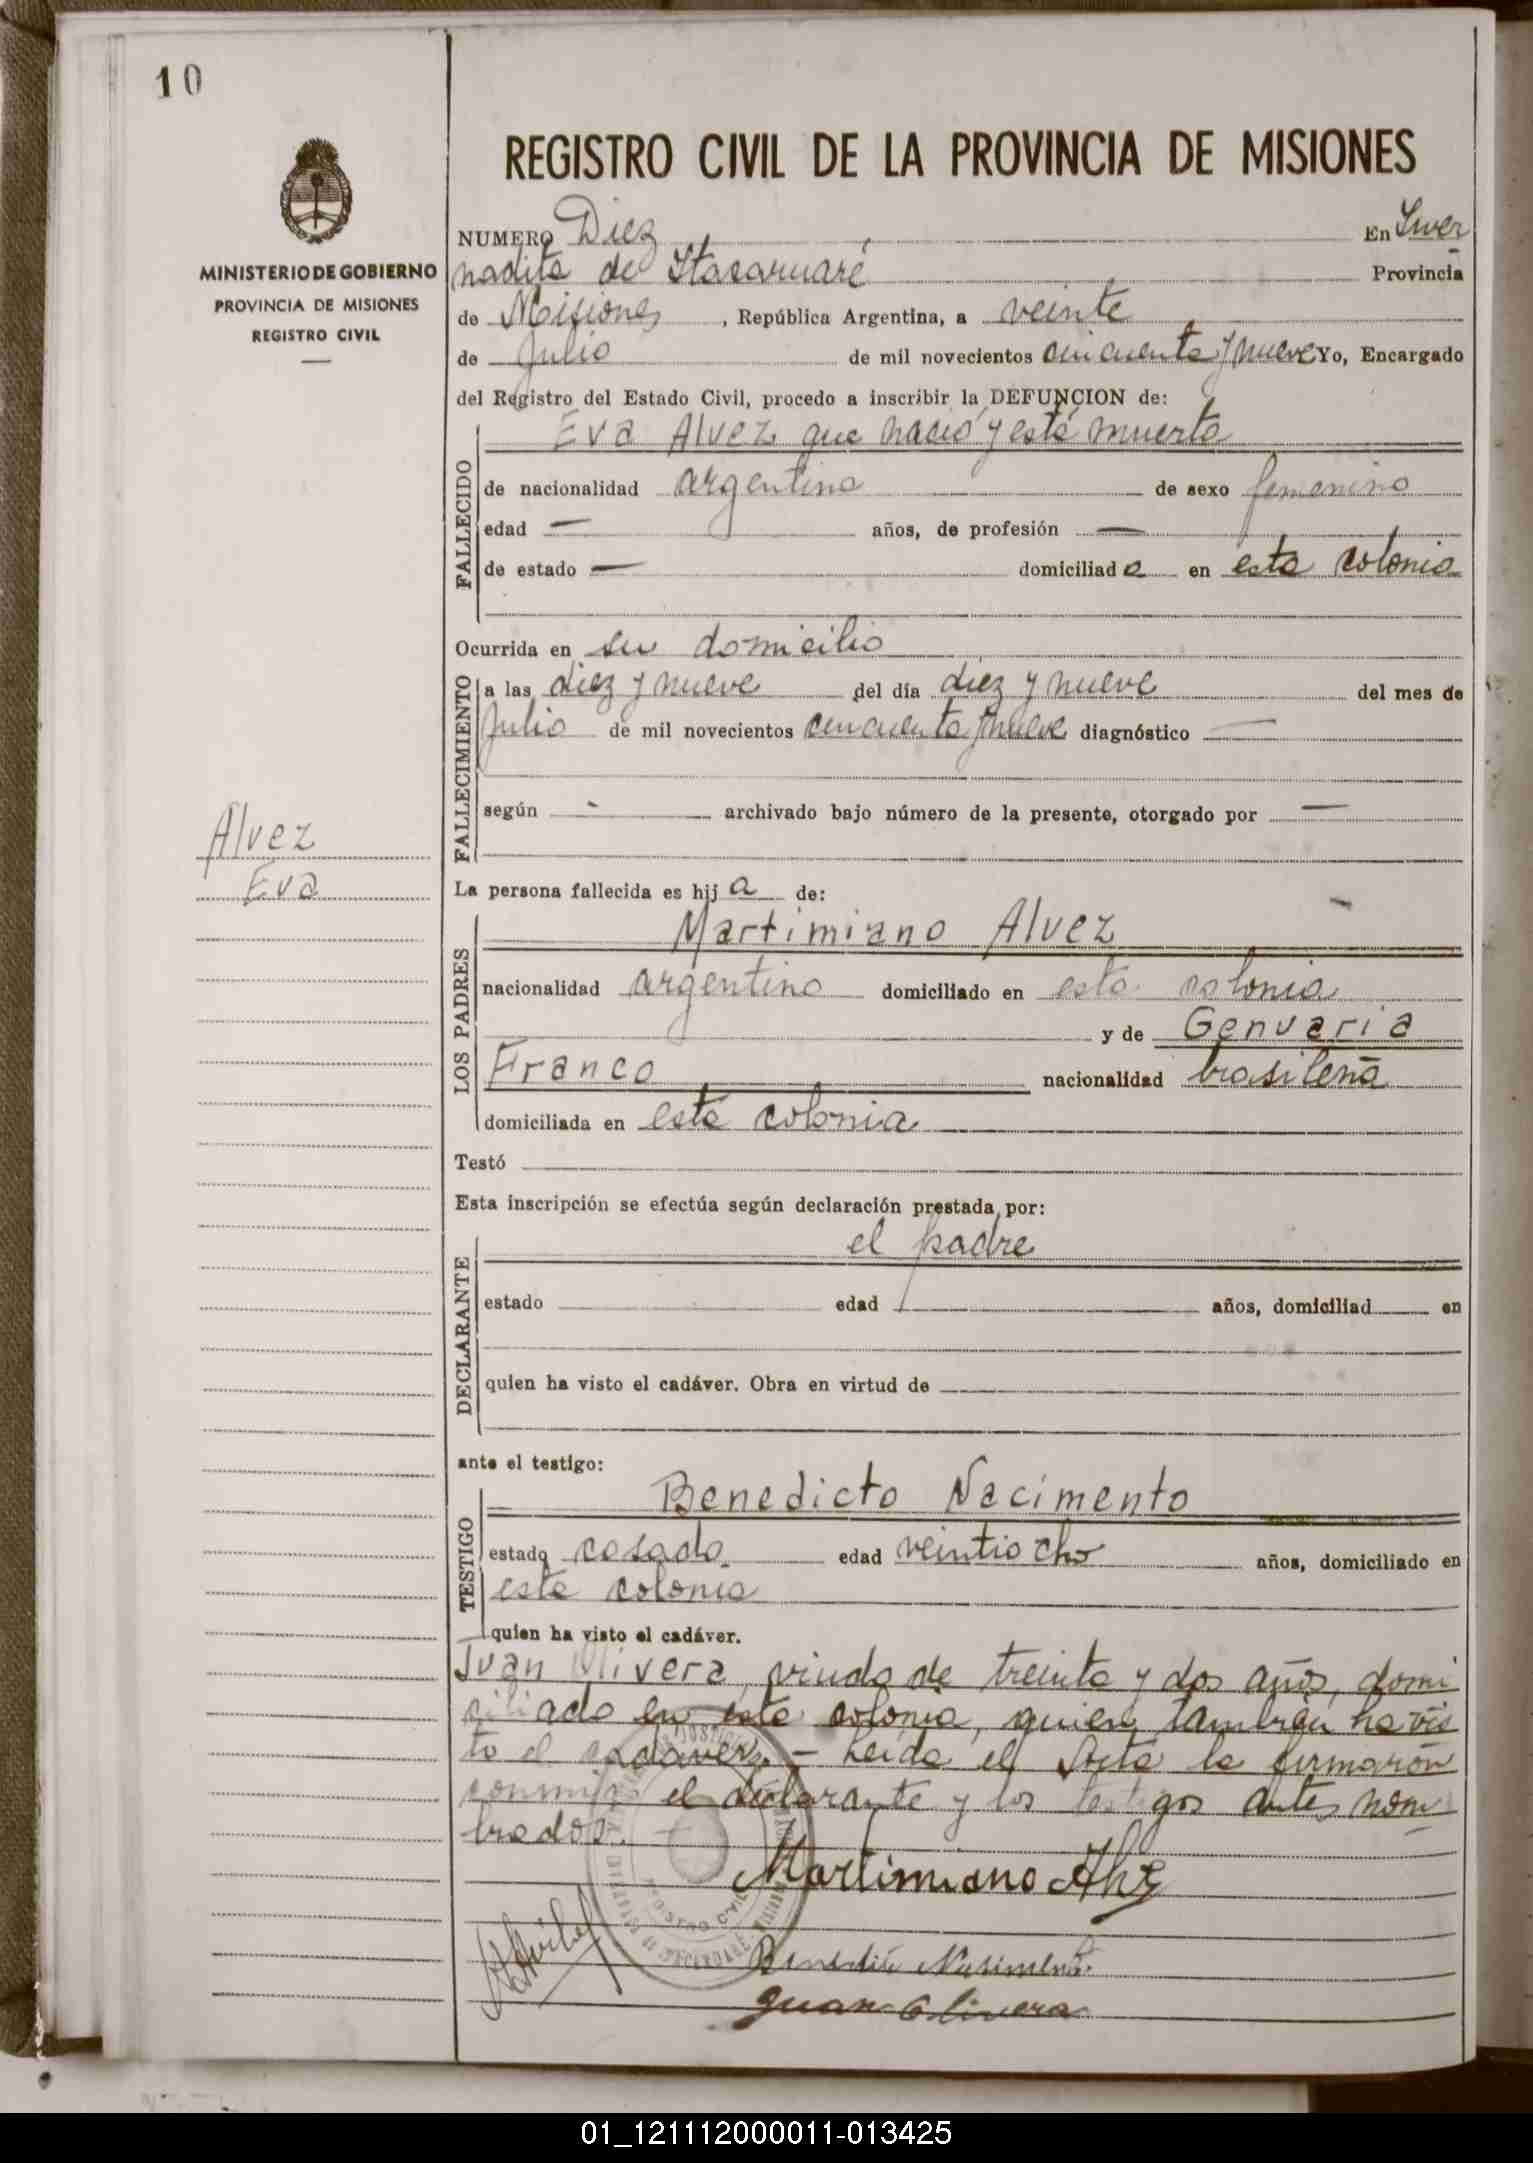 10
REGISTRO CIVIL DE LA PROVINCIA DE MISIONES
MINISTERIO DE GOBIERNO
PROVINCIA DE MISIONES
REGISTRO CIVIL
NUMERO Diez En Inver
nadita de Itacaruaré Provincia
de Misiones, República Argentina, a veinte
de Julio de mil novecientos cincuenta y nueve Yo, Encargado
del Registro del Estado Civil, procedo a inscribir la DEFUNCION de:
FALLECIDO
Eva Alvez que nació y está muerta
de nacionalidad argentina de sexo femenino
edad — años, de profesión —
de estado — domiciliada en esta colonia
Ocurrida en su domicilio
FALLECIMIENTO
a las diez y nueve del día diez y nueve del mes de
Julio de mil novecientos cincuenta y nueve diagnóstico —
según - archivado bajo número de la presente, otorgado por —
Alvez
Eva
La persona fallecida es hija de:
LOS PADRES
Martimiano Alvez
nacionalidad argentino domiciliado en esta colonia
y de Genvaria
Franco nacionalidad brasileña
domiciliada en esta colonia
Testó
Esta inscripción se efectúa según declaración prestada por:
DECLARANTE
el padre
estado edad años, domiciliad en
quien ha visto el cadáver. Obra en virtud de
ante el testigo:
TESTIGO
Benedicto Nacimento
estado casado edad veintiocho años, domiciliado en
esta colonia
quien ha visto el cadáver.
Juan Olivera, viudo de treinta y dos años, domi
ciliado en esta colonia, quien también ha vis
to el cadaver. - Leída el Acta la firmaron
conmigo el declarante y los testigos antes nom
brados.
Martimiano Alvez
Juan Olivera
REGISTRO CIVIL
01_121112000011-013425